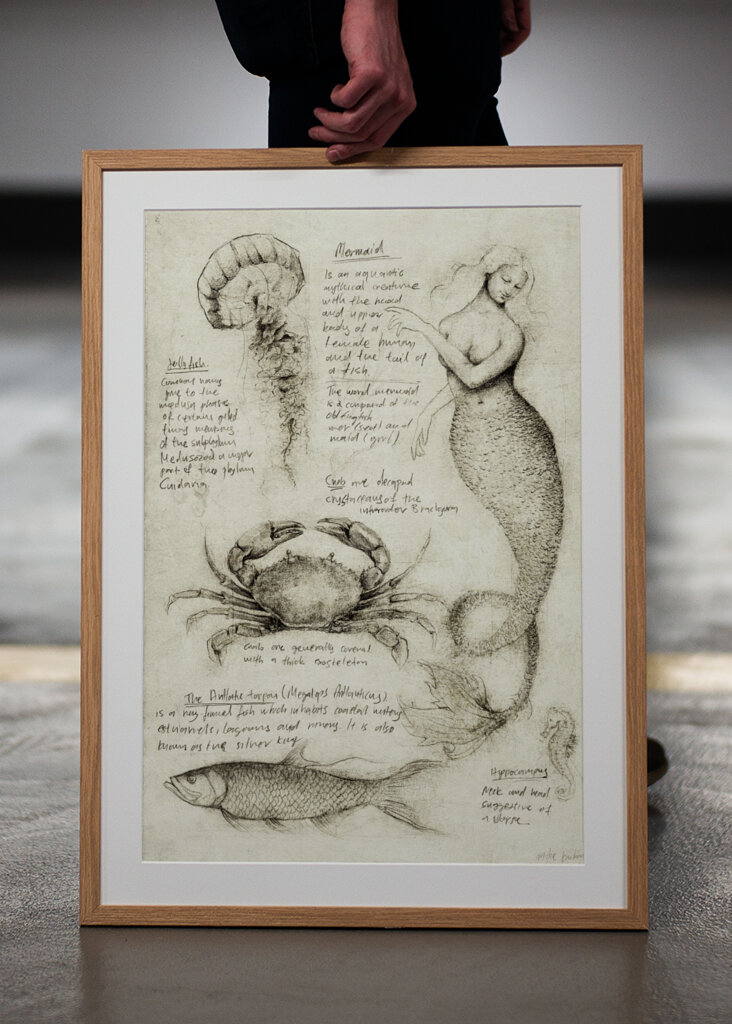 Mermaid
Is an aquatic
mythical creature
with the head
and upper
body of a
female human
and the tail of
a fish
The word mermaid
is a compound of the
old english
mer (sea) and
maid (girl)
Jelly fish.
Common name
to the
medusa phase
of certain
members
of the subphylum
Medusozoa a major
part of the phylum
Cnidaria
Crabs are decapod
crustaceans of the
Brachyura
crabs are generally covered
with a thick exoskeleton
The Atlantic tarpon (Megalops Atlanticus)
is a ray finned fish which inhabits coastal waters
estuaries, lagoons and rivers. It is also
known as the silver king
Hippocampus
Neck and head
suggestive of
a horse